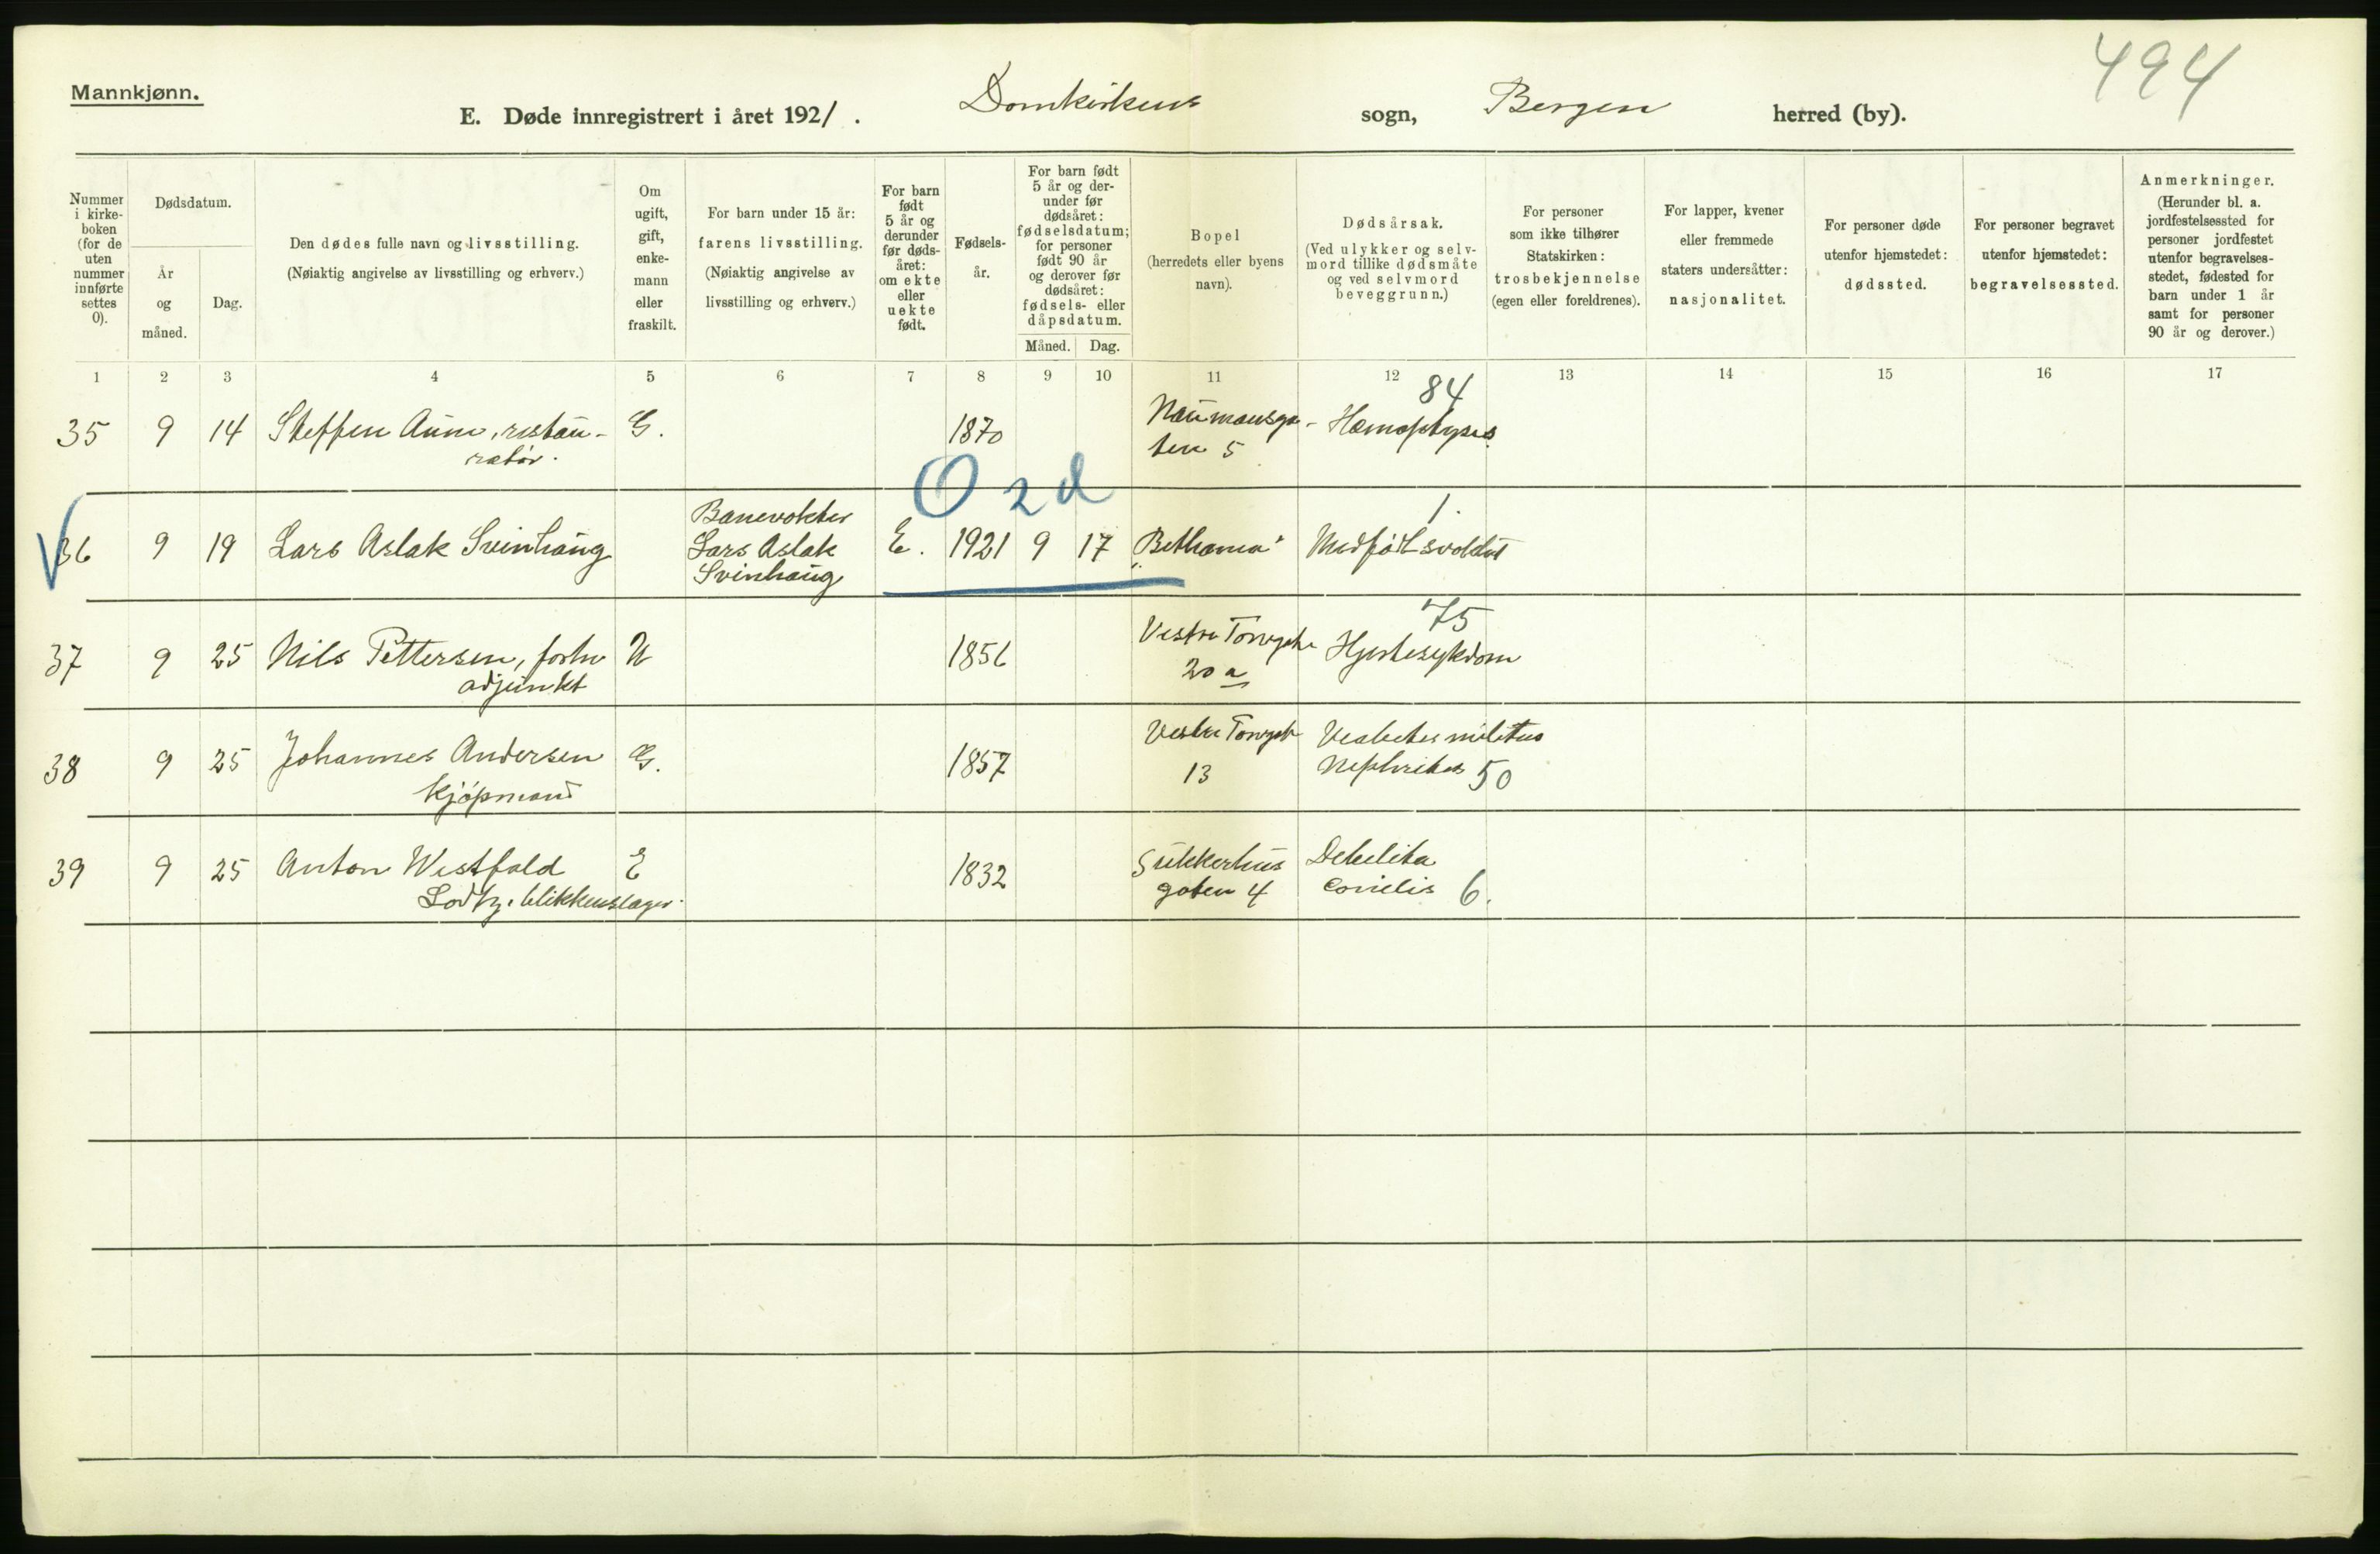 494
Mannkjønn.
E. Døde innregistrert i året 1921 . Domkirkens sogn, Bergen herred (by).
Nummer
i kirke-
boken
(for de
uten
nummer
innførte
settes
0).
Dødsdatum.
År
og
måned.
Dag.
Den dødes fulle navn og livsstilling.
(Nøiaktig angivelse av livsstilling og erhverv.)
Om
ugift,
gift,
enke-
mann
eller
fraskilt.
For barn under 15 år:
farens livsstilling.
(Nøiaktig angivelse av
livsstilling og erhverv.)
For barn
født
5 år og
derunder
før døds-
året:
om ekte
eller
uekte
født.
Fødsels-
år.
For barn født
5 år og der-
under før
dødsåret:
fødselsdatum;
for personer
født 90 år
og derover før
dødsåret:
fødsels- eller
dåpsdatum.
Måned. Dag.
Bopel
(herredets eller byens
navn).
Dødsårsak.
(Ved ulykker og selv-
mord tillike dødsmåte
og ved selvmord
beveggrunn.)
For personer
som ikke tilhører
Statskirken:
trosbekjennelse
(egen eller foreldrenes).
For lapper, kvener
eller fremmede
staters undersåtter:
nasjonalitet.
For personer døde
utenfor hjemstedet:
dødssted.
For personer begravet
utenfor hjemstedet:
begravelsessted.
Anmerkninger.
(Herunder bl. a.
jordfestelsessted for
personer jordfestet
utenfor begravelses-
stedet, fødested for
barn under 1 år
samt for personer
90 år og derover.)
1 2 3 4 5 6 7 8 9 10 11 12 13 14 15 16 17
84
35 9 14 Steffen Aune, restau- G. 1870 Naumannsga- Hæmoptyses
ratør. ten 5
O 2 d
Banevokter 1.
36 9 19 Lars Aslak Svinhaug Lars Aslak E. 1921 9 17 "Bethania" Medfødt svakhet
Svinhaug
75
37 9 25 Nils Pettersen, forhv U 1856 Vestre Torvgate Hjertesykdom
adjunkt 20 a
38 9 25 Johannes Andersen G. 1857 Vestre Torvgt Diabetes militus
kjøpmand 13 Nephritis 50
39 9 25 Anton Westfald E 1832 Sukkerhus Debilita
blikkenslager gaten 4 6.